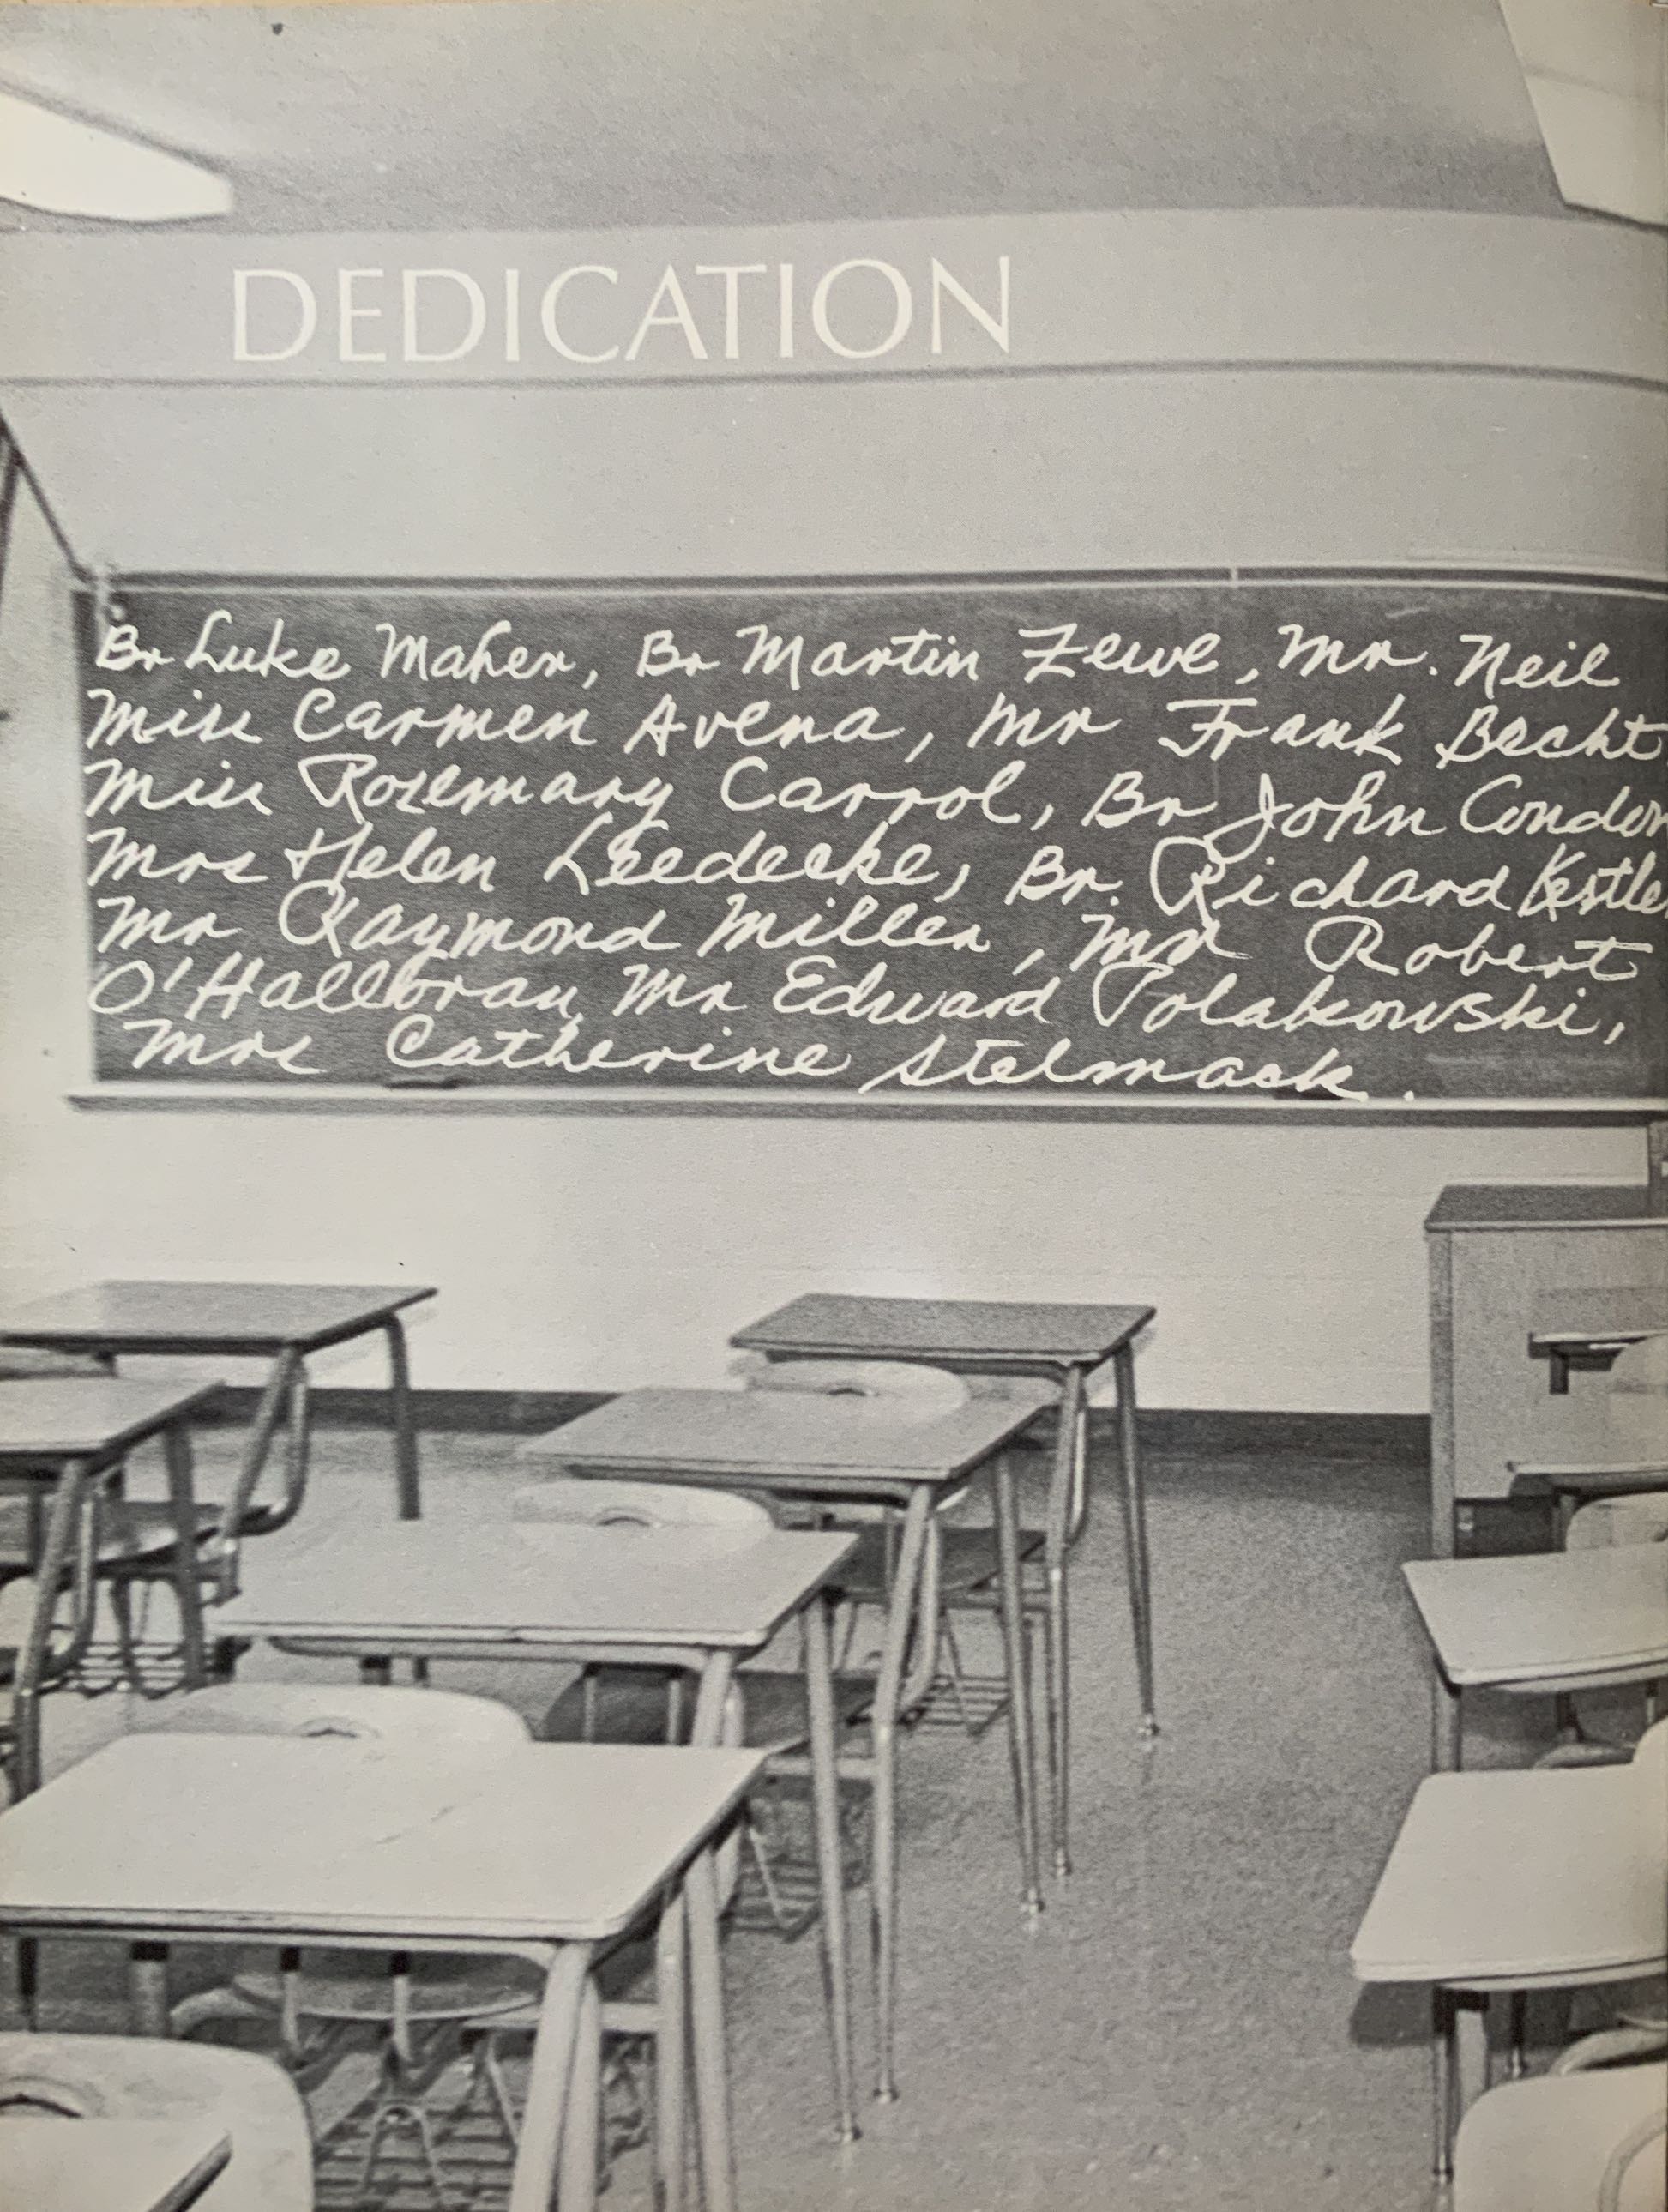 DEDICATION
Br Luke Maher, Br Martin Zewe, Mr. Neil
Miss Carmen Avena, Mr Frank Becht
Miss Rosemary Carrol, Br John Condon
Mrs Helen Leedecke, Br. Richard Kestler
Mr Raymond Miller, Mr Robert
O'Halloran, Mr Edward Polakowski,
Mrs Catherine Stelmack.